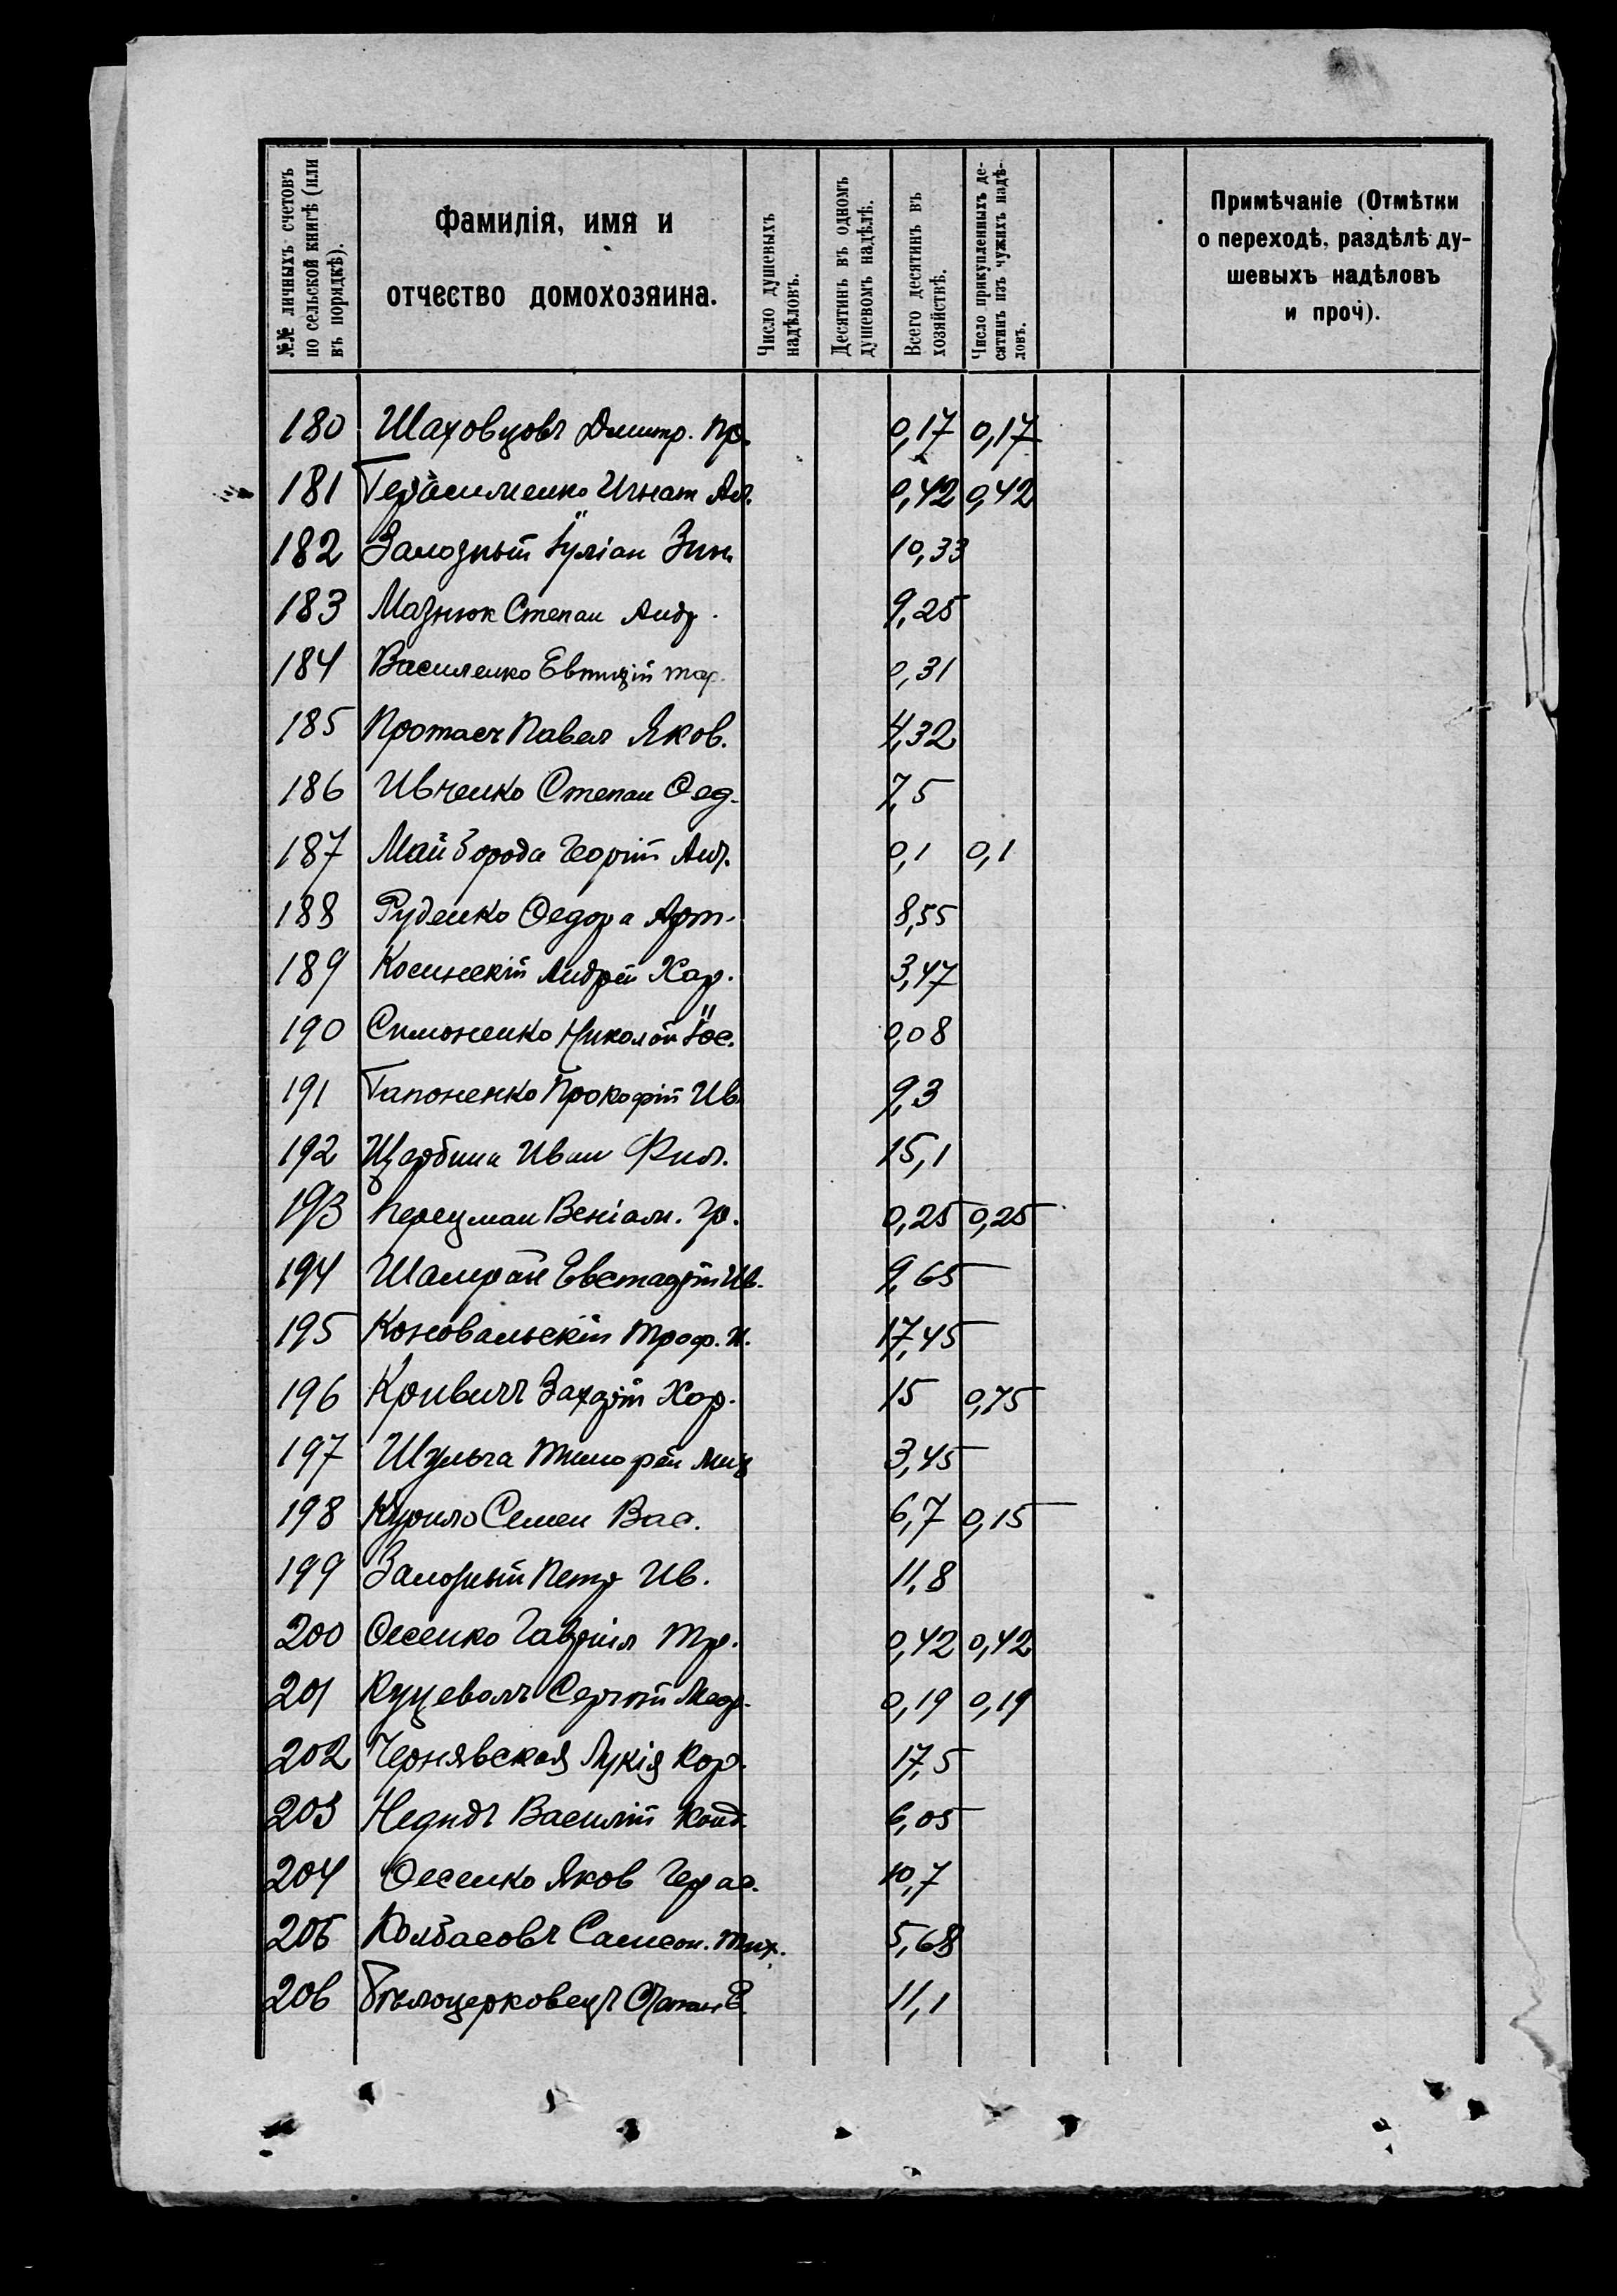 №№ личныхъ счетовъ по сельской книгѣ (или въ порядкѣ).
Фамилія, имя и отчество домохозяина.
Число душевыхъ надѣловъ.
Десятинъ въ одномъ душевомъ надѣлѣ.
Всего десятинъ въ хозяйствѣ.
Число прикупленныхъ десятинъ изъ чужихъ надѣловъ.
Примѣчаніе (Отмѣтки о переходѣ, раздѣлѣ душевыхъ надѣловъ и проч).
180 Шаховцовъ Дмитр. Пр. 0,17 0,17
181 Герасименко Игнат Ал. 0,42 0,42
182 Заможный Іуліан Зин. 10,33
183 Мазнюк Степан Андр. 9,25
184 Василенко 0,31
185 Протасъ Павел Яков. 4,32
186 Ивченко Степан Ѳед. 7,5
187 Майборода Георгій 0,1 0,1
188 Руденко Ѳедора Арт. 8,55
189 Косинскій Андрей Хар. 3,47
190 Симоненко Николай Іос. 0,08
191 Гапоненко Прокофій Ив. 9,3
192 Щербина Иван Фил. 15,1
193 Перецман Веніам. Гр. 0,25 0,25
194 Шамрай Евстафій Ив. 9,65
195 Коновальскій Троф. И. 17,45
196 Кривичъ Захарій Хар. 15 0,75
197 Шульга Тимофей 3,45
198 Курило Семен Вас. 6,7 0,15
199 Заможный Петр Ив. 11,8
200 Овсенко Гавріил Тр. 0,42 0,42
201 Куцеволъ Сергій 0,19 0,19
202 Чернявская Лукія Кор. 17,5
203 Недидъ Василій Конд. 6,05
204 Овсенко Яков Герас. 10,7
205 Колбасовъ Самсон. Тих. 5,68
206 Бѣлоцерковецъ Степан Е. 11,1